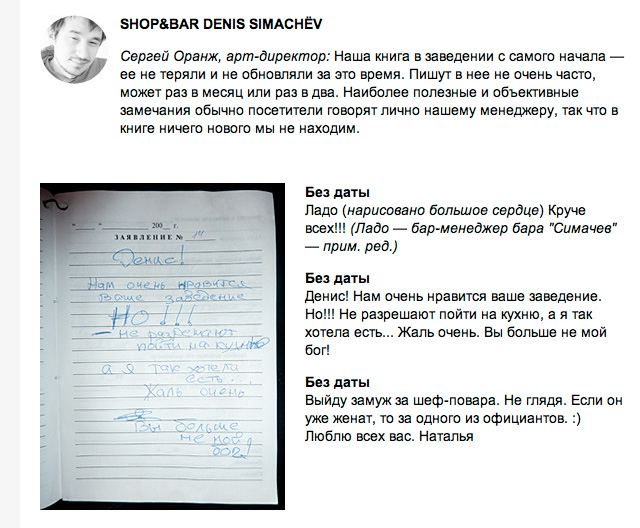 SHOP&BAR DENIS SIMACHЁV
Сергей Оранж, арт-директор: Наша книга в заведении с самого начала —
ее не теряли и не обновляли за это время. Пишут в нее не очень часто,
может раз в месяц или раз в два. Наиболее полезные и объективные
замечания обычно посетители говорят лично нашему менеджеру, так что в
книге ничего нового мы не находим.
"___" ________ 200__ г.
ЗАЯВЛЕНИЕ № 14
Денис!
Нам очень нравится
Ваше заведение
НО!!!
— не разрешают
пойти на кухню
а я так хотела
есть...
Жаль очень
Вы больше
не мой
бог!
Без даты
Ладо (нарисовано большое сердце) Круче
всех!!! (Ладо — бар-менеджер бара "Симачев"
— прим. ред.)
Без даты
Денис! Нам очень нравится ваше заведение.
Но!!! Не разрешают пойти на кухню, а я так
хотела есть... Жаль очень. Вы больше не мой
бог!
Без даты
Выйду замуж за шеф-повара. Не глядя. Если он
уже женат, то за одного из официантов. :)
Люблю всех вас. Наталья